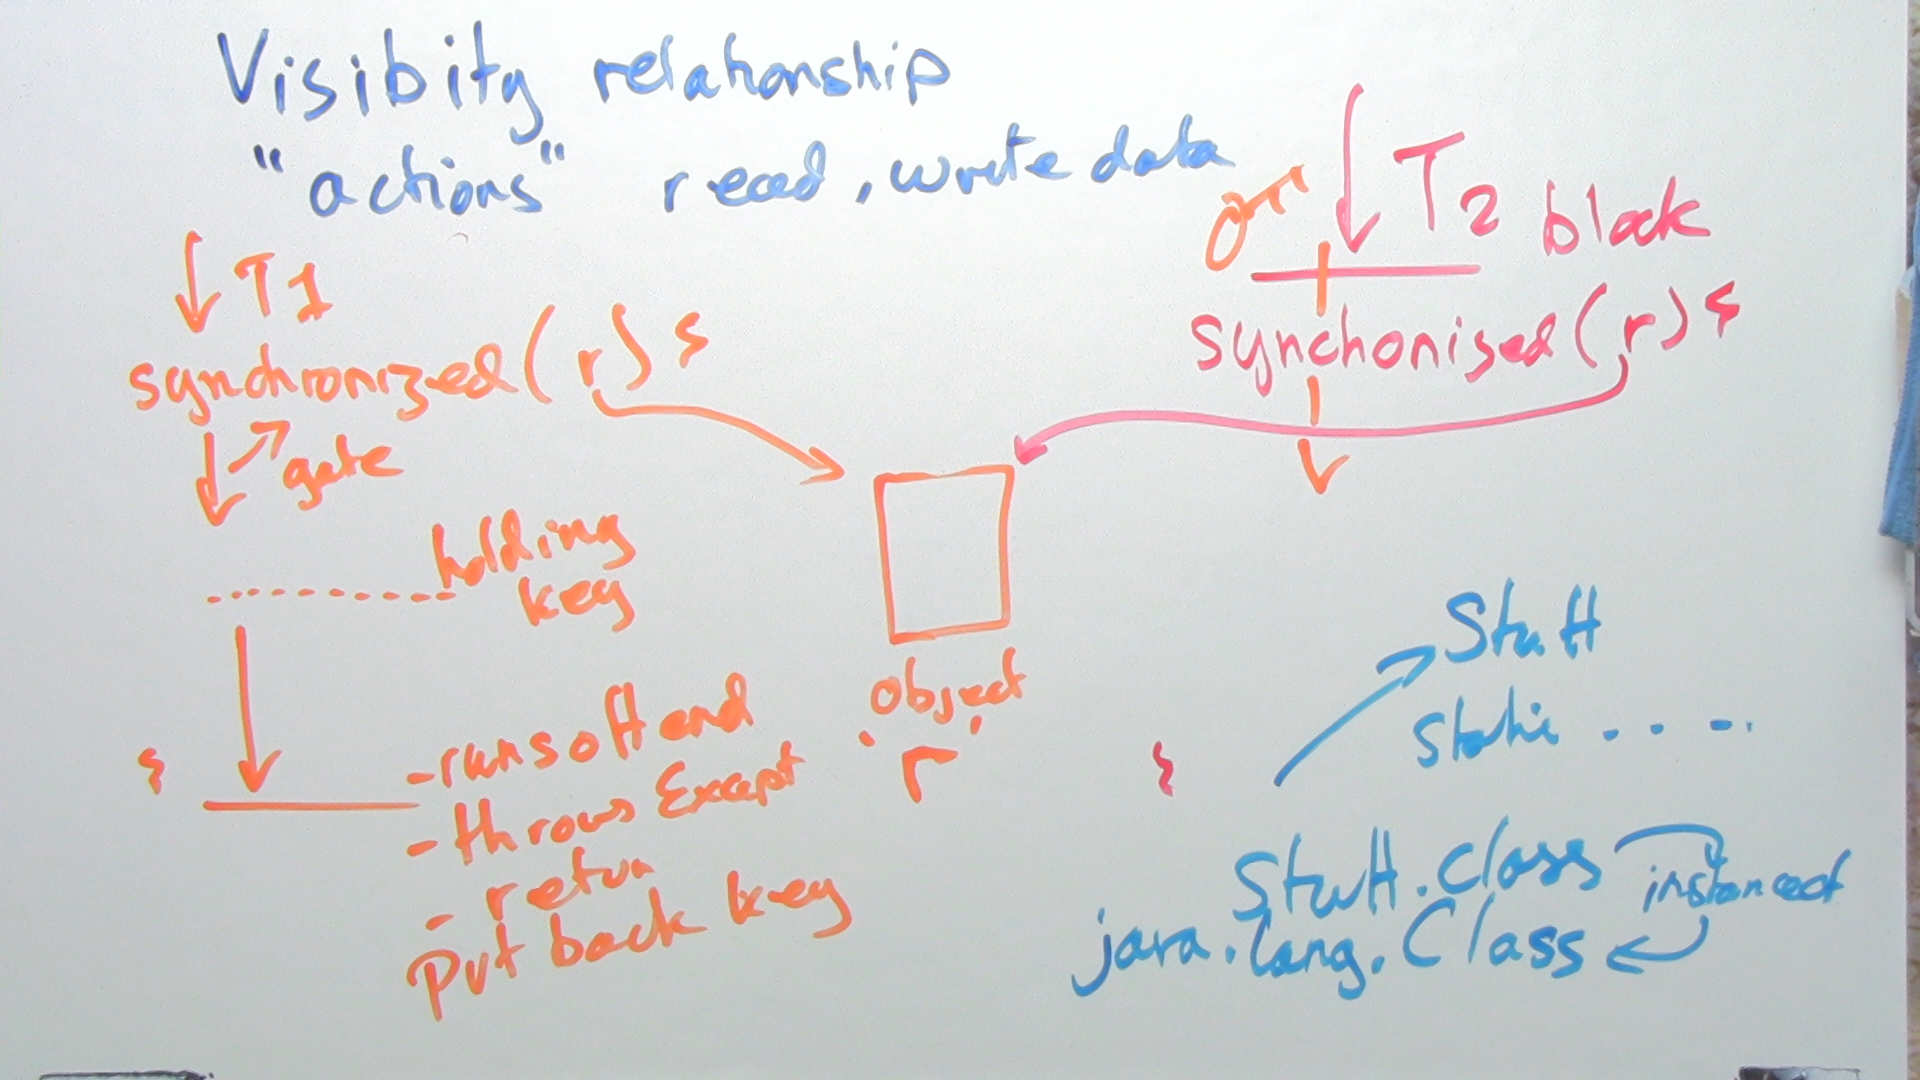 Visibity relationship
"actions" read, write data
T1
synchronized (r) {
gate
holding
key
- runs off end
- throws Except
- retun
put back key
}
object
'r'
T2 block
synchonised (r) {
}
Stuff
static . . . .
Stuff.class
instance of
java.lang.Class